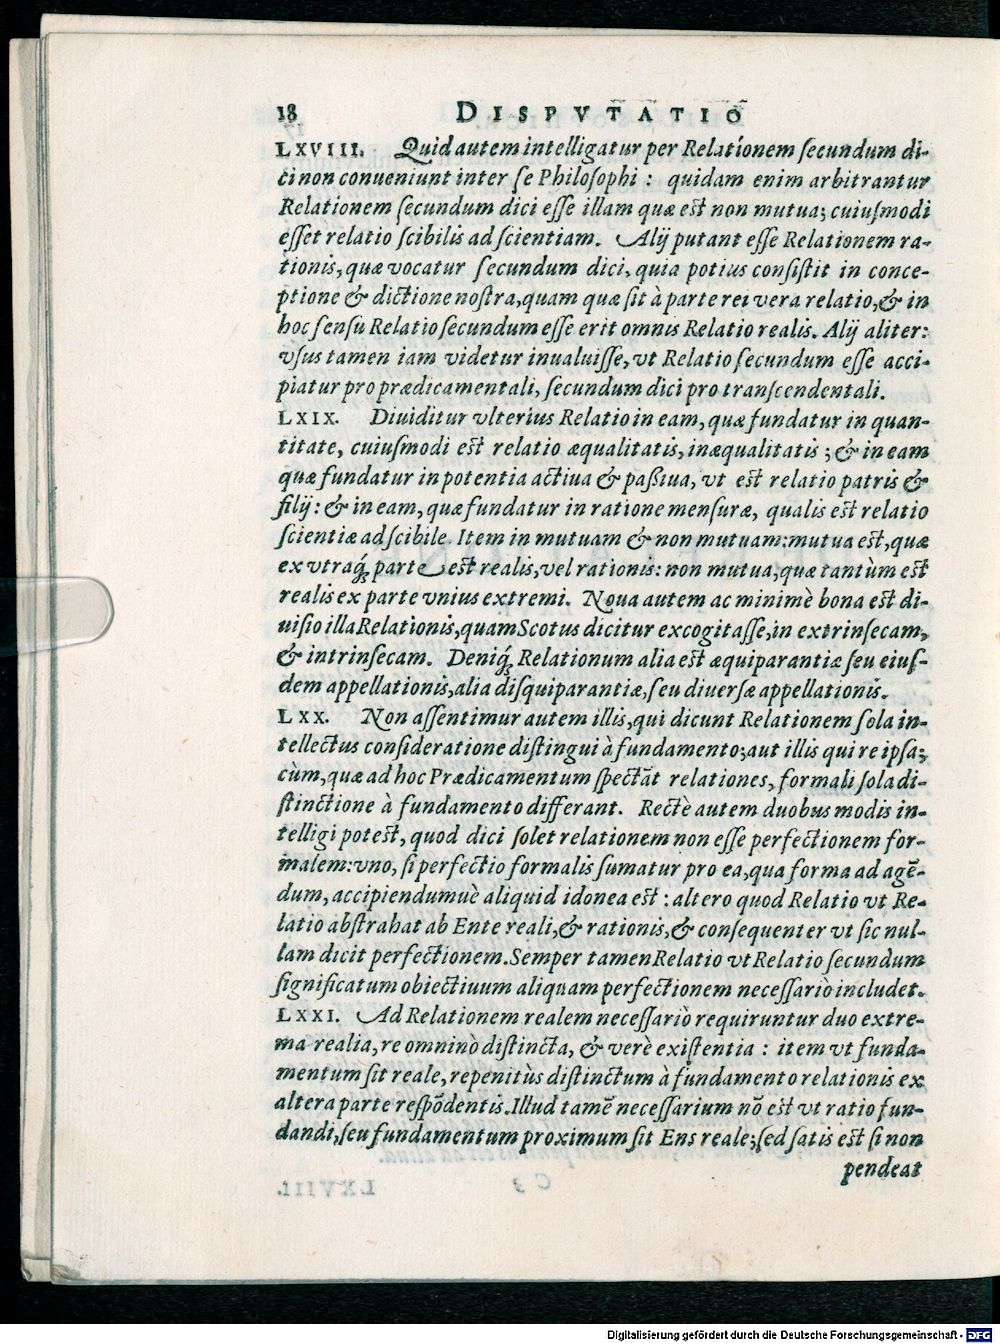 18 DISPVTATIO
LXVIII. Quid autem intelligatur per Relationem ſecundum di-
ci non conueniunt inter ſe Philoſophi: quidam enim arbitrantur
Relationem ſecundum dici eſſe illam quæ eſt non mutua; cuiuſmodi
eſſet relatio ſcibilis ad ſcientiam. Alij putant eſſe Relationem ra-
tionis, quæ vocatur ſecundum dici, quia potius conſiſtit in conce-
ptione & dictione noſtra, quam quæ ſit à parte rei vera relatio, & in
hoc ſenſu Relatio ſecundum eſſe erit omnis Relatio realis. Alij aliter:
vſus tamen iam videtur inualuiſſe, vt Relatio ſecundum eſſe acci-
piatur pro prædicamentali, ſecundum dici pro tranſcendentali.
LXIX. Diuiditur vlterius Relatio in eam, quæ fundatur in quan-
titate, cuiuſmodi eſt relatio æqualitatis, inæqualitatis; & in eam
quæ fundatur in potentia actiua & paßiua, vt eſt relatio patris &
filij: & in eam, quæ fundatur in ratione menſuræ, qualis eſt relatio
ſcientiæ ad ſcibile. Item in mutuam & non mutuam: mutua eſt, quæ
ex vtraq́; parte eſt realis, vel rationis: non mutua, quæ tantùm eſt
realis ex parte vnius extremi. Noua autem ac minimè bona eſt di-
uiſio illa Relationis, quam Scotus dicitur excogitaſſe, in extrinſecam,
& intrinſecam. Deniq́; Relationum alia eſt æquiparantiæ ſeu eiuſ-
dem appellationis, alia diſquiparantiæ, ſeu diuerſæ appellationis.
LXX. Non aſſentimur autem illis, qui dicunt Relationem ſola in-
tellectus conſideratione diſtingui à fundamento; aut illis qui re ipſa;
cùm, quæ ad hoc Prædicamentum ſpectãt relationes, formali ſola di-
ſtinctione à fundamento differant. Rectè autem duobus modis in-
telligi poteſt, quod dici ſolet relationem non eſſe perfectionem for-
malem: vno, ſi perfectio formalis ſumatur pro ea, qua forma ad agẽ-
dum, accipiendumuè aliquid idonea eſt: altero quod Relatio vt Re-
latio abſtrahat ab Ente reali, & rationis, & conſequenter vt ſic nul-
lam dicit perfectionem. Semper tamen Relatio vt Relatio ſecundum
ſignificatum obiectiuum aliquam perfectionem neceſſariò includet.
LXXI. Ad Relationem realem neceſſariò requiruntur duo extre-
ma realia, re omninò diſtincta, & verè exiſtentia: item vt funda-
mentum ſit reale, re penitùs diſtinctum à fundamento relationis ex
altera parte reſpõdentis. Illud tamẽ neceſſarium nõ eſt vt ratio fun-
dandi, ſeu fundamentum proximum ſit Ens reale; ſed ſatis eſt ſi non
pendeat
Digitalisierung gefördert durch die Deutsche Forschungsgemeinschaft - DFG